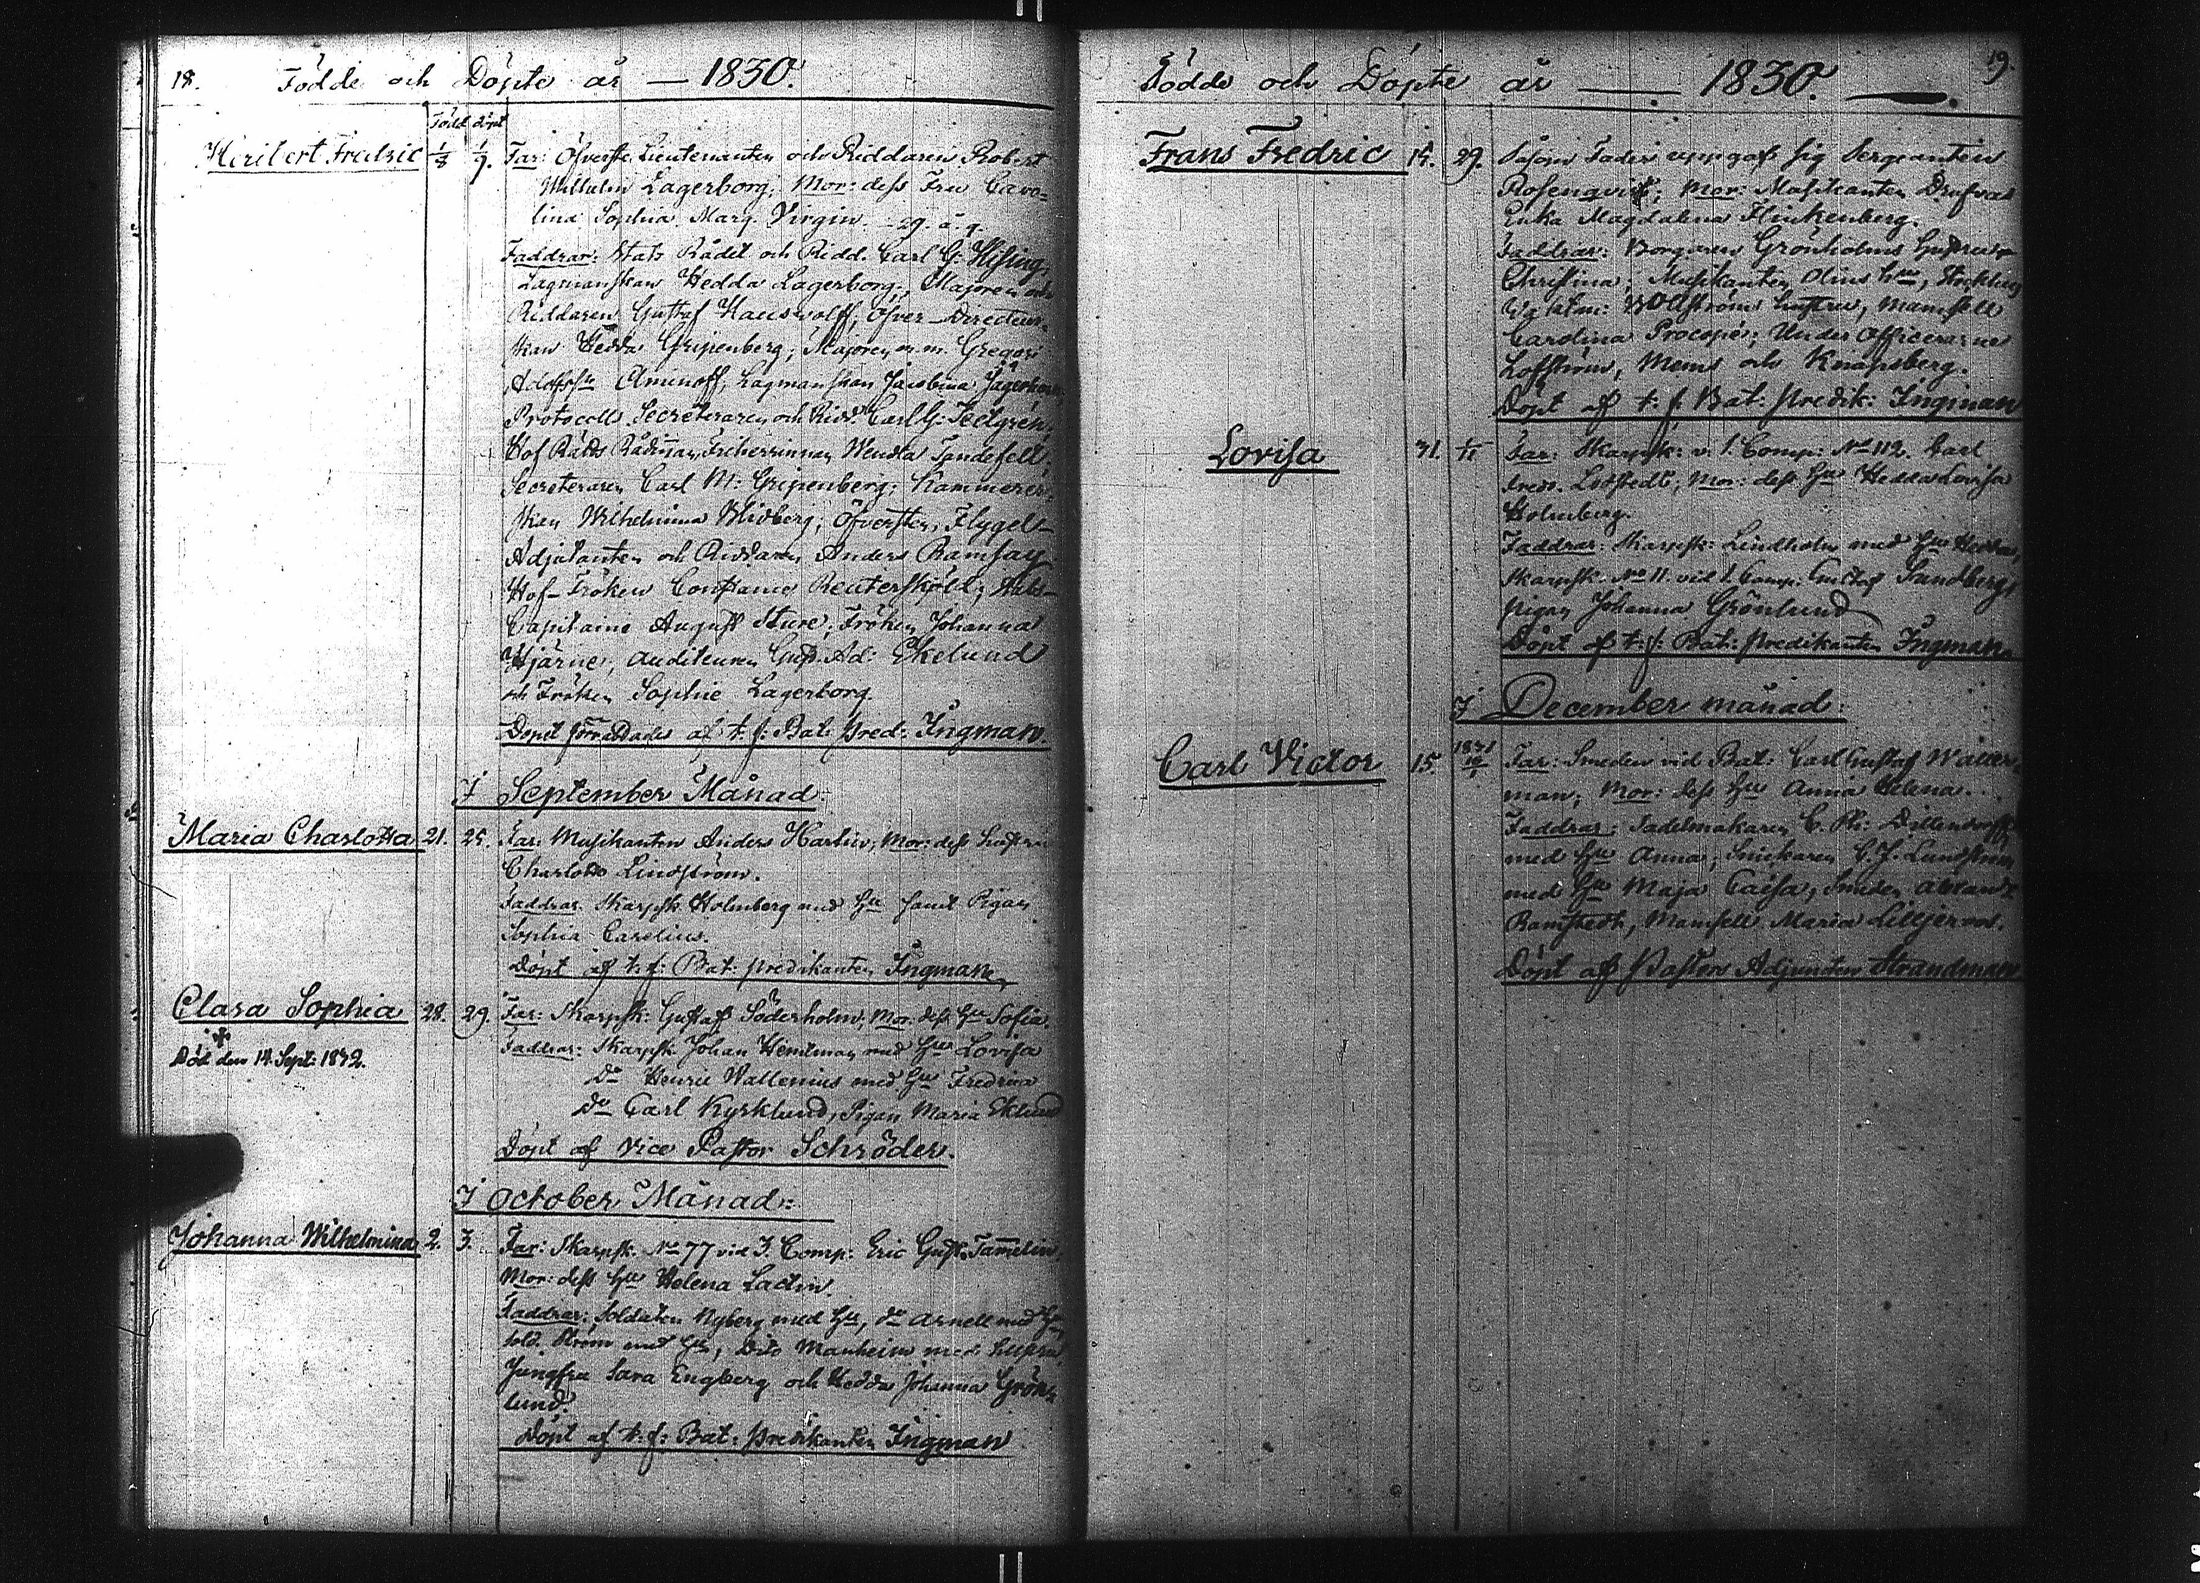 18. Födde och Döpte år — 1830.
Född döpt
Heribert Fredric 1/8 1/9. Far: Öfverste Lieutenanten och Riddaren Robert
Wilhelm Lagerborg; Mor: dess Fru Caro=
lina Sophia Marg. Virgin. 29. å. g.
Faddrar: Stats Rådet och Ridd. Carl G: Hising,
Lagmanskan Hedda Lagerborg; Majoren och
Riddaren Gustaf Hauswolff; Öfver-Directeur-
skan Hedda Gripenberg; Majoren m.m. Gregori
Adolfss: Aminoff, Lagmanskan Jacobina Jägerhorn
Protocolls Secreteraren och Ridd. Carl G: Tectgrén;
Hof Rådinnan, Friherrinnan Wendla Tandefelt;
Secreteraren Carl M: Gripenberg; Kammerer-
skan Wilhelmina Widberg; Öfversten, Flygel-
Adjutanten och Riddaren Anders Ramsay
Hof-Fröken Constance Reuterskjöld; Stabs-
Capitaine August Sture; Fröken Johanna
Hjärne, Auditeuren Gust. Ad: Ekelund
och Fröken Sophie Lagerborg.
Dopet förrättades af t. f: Bat: Pred: Ingman.
I September Månad:
Maria Charlotta 21. 25. Far: Musikanten Anders Hartin; Mor: dess hustru
Charlotta Lindström.
Faddrar. Skarpsk. Holmberg med Hu samt Pigan
Sophia Carelius.
Döpt af t. f: Bat: predikanten Ingman
Clara Sophia 28. 29. Far: Skarpsk: Gustaf Söderholm; Mor: dess Hu Sofia.
Död den 14. Sept: 1832.
Faddrar: Skarpsk Johan Hemlman med Hu Lovisa
Do Henric Wallenius med Hu Fredrica
Do Carl Kyrklund, Pigan Maria Eklund
Döpt af Vice Pastor Schröder.
I October Månad:
Johanna Wilhelmina 2. 3. Far: Skarpsk. No 77 vid 3. Comp: Eric Gust. Tamelin,
Mor: dess Hu Helena Lactin.
Faddrar: Soldaten Nyberg med Hu, do Arnell med Hu
Sold. Ström med Hu, Dito Manheim med hustru,
Jungfru Sara Engberg och Hedda Johanna Grön=
lund.
Döpt af t. f: Bat: predikanten Ingman
Födde och Döpte år — 1830. 19.
Frans Fredric 15. 29. Såsom Fader uppgaf sig Sergeanten
Rosenqvist; Mor: Musikanten Drufvas
Enka Magdalena Flinkenberg.
Faddrar: Borgaren Grönholms hustru
Christina; Musikanten Olins Hu,
Wållströms hustru, Mamsell
Carolina Procopé; Under Officerarne
Loffström, Mems och Knapsberg.
Döpt af t. f Bat: predik: Ingman
Lovisa 31. Far: Skarpsk: v. 1. Comp: No 112. Carl
Fredr. Lofstedt; Mor: dess Hu Hedda Lovisa
Holmberg.
Faddrar: Skarpsk: Lindholm med Hu Hedda,
Skarpsk. No 11 vid 1. Comp: Gustaf Sandberg,
pigan Johanna Grönlund
Döpt af t. f: Bat: predikanten Ingman.
I December månad:
Carl Victor 15. 1831 16/1 Far: Smeden vid Bat: Carl Gustaf Waller-
man; Mor: dess Hu Anna Helena.
Faddrar: Sadelmakaren C. Ph: Dillendorff
med Hu Anna; Snickaren C. J. Lundström
med Hu Maja Caisa, Smeden
Ramstedt, Mamsell Maria Silljerroos.
Döpt af Pastors Adjuncten Strandman